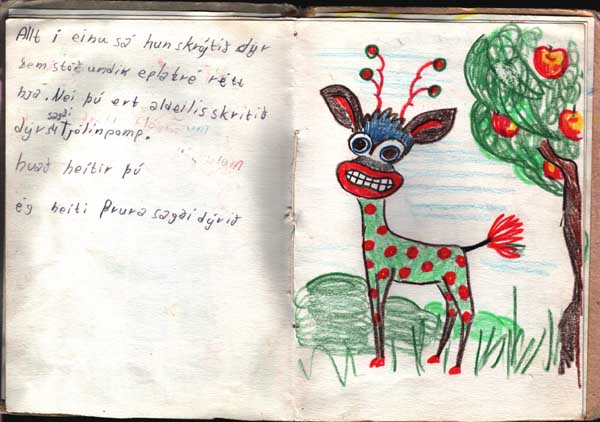 Allt í einu sá hun skrýtið dýr
sem stóð undir eplatré rétt
hjá. Nei þú ert aldeilis skritið
dýr sagði Tjólinpomp.
hvað heitir þú
ég heiti Prura sagði dýrið